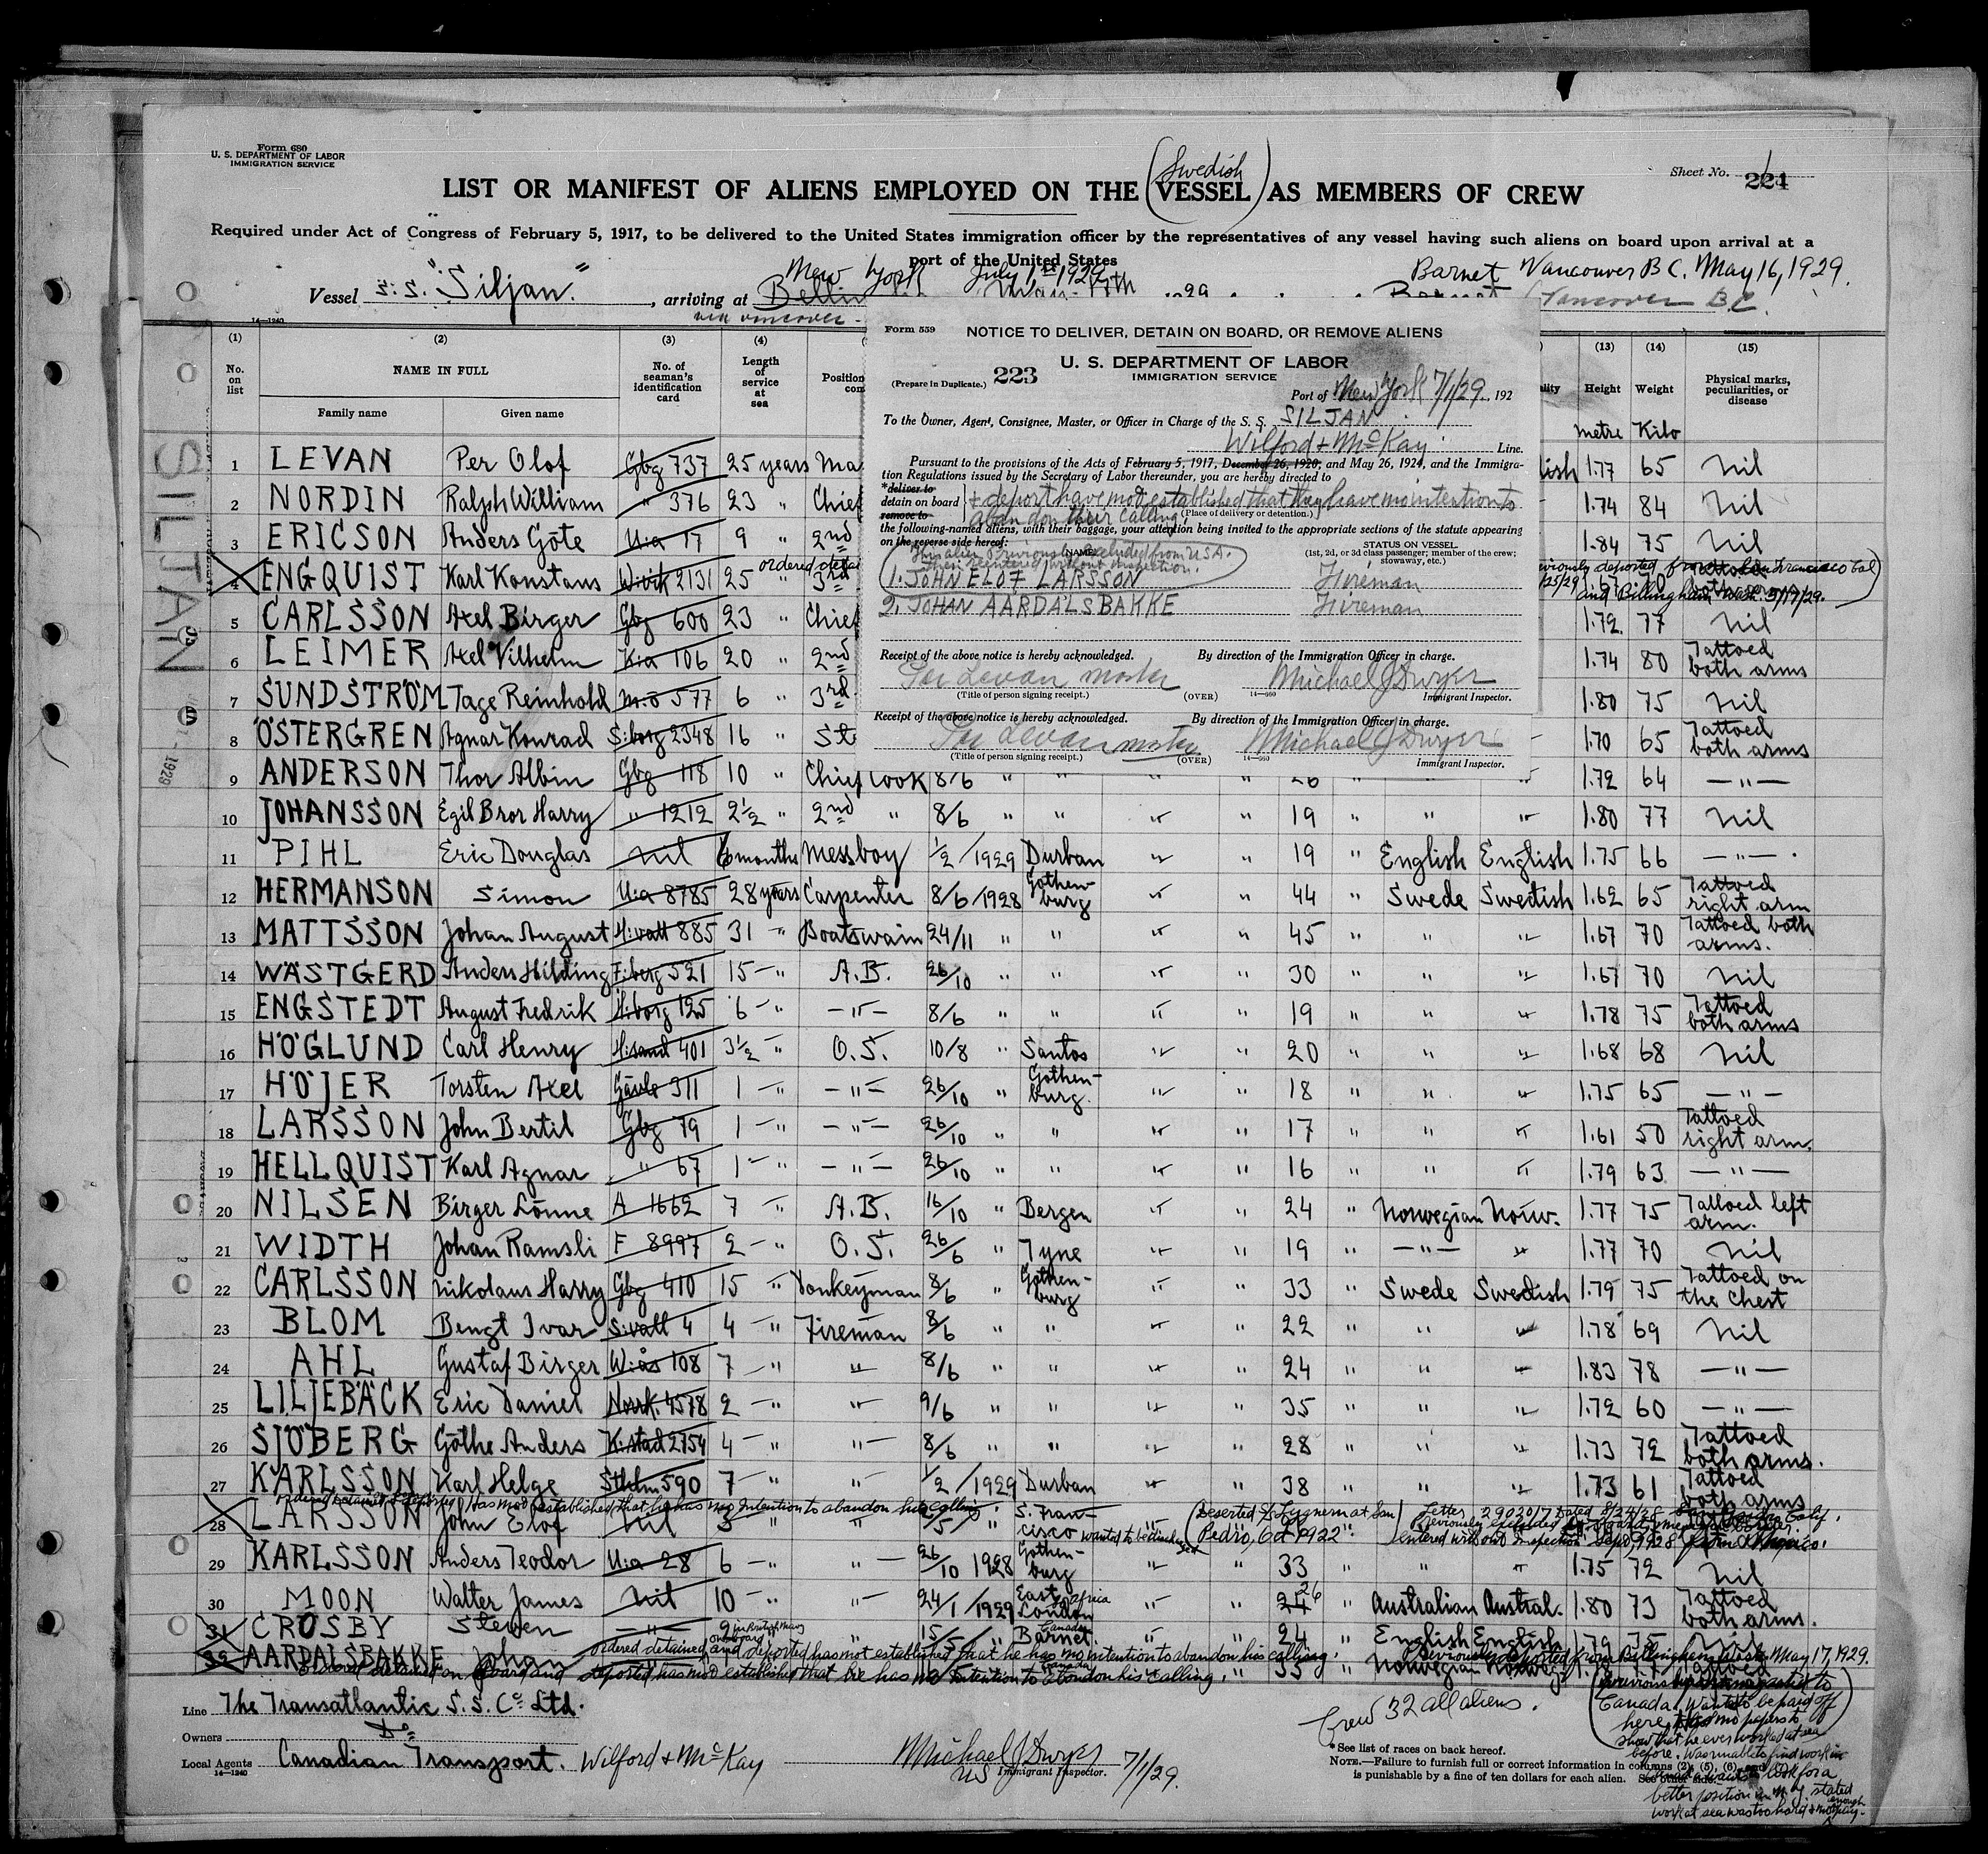 Form 680
U. S. DEPARTMENT OF LABOR
IMMIGRATION SERVICE
Sheet No. 224
(Swedish)
LIST OR MANIFEST OF ALIENS EMPLOYED ON THE VESSEL AS MEMBERS OF CREW
Required under Act of Congress of February 5, 1917, to be delivered to the United States immigration officer by the representatives of any vessel having such aliens on board upon arrival at a
port of the United States
New York July 1st 1929 Barnet Vancouver B.C. May 16, 1929.
Vessel S.S. "Siljan" , arriving at Vancouver B.C.
via vancouver
14—1240
(1) (2) (3) (4) (13) (14) (15)
No. on list NAME IN FULL No. of seaman's identification card Length of service at sea Position Height Weight Physical marks, peculiarities, or disease
Family name Given name
metre Kilo
SILJAN
1929
1 LEVAN Per Olof Gbg 737 25 years Ma 1.77 65 Nil
2 NORDIN Ralph William " 376 23 " Chief 1.74 84 Nil
3 ERICSON Anders Göte U:a 17 9 " 2nd 1.84 75 Nil
ordered
4 ENGQUIST Karl Konstans W:vik 2131 25 " 3rd
and Billingham Wash. 5/17/29.
5 CARLSSON Axel Birger Gbg 600 23 " Chief 1.72 77 Nil
6 LEIMER Axel Vilhelm K:a 106 20 " 2nd 1.74 80 Tattoed both arms
7 SUNDSTRÖM Tage Reinhold M:ö 577 6 " 3rd 1.80 75 Nil
8 ÖSTERGREN Agnar Konrad S:borg 2348 16 " St 1.70 65 Tattoed both arms
9 ANDERSON Thor Albin Gbg 118 10 " Chief Cook 8/6 " " " " 26 " " " 1.72 64 —"—
10 JOHANSSON Egil Bror Harry " 1212 2½ " 2nd " 8/6 " " " " 19 " " " 1.80 77 Nil
11 PIHL Eric Douglas Nil 6 months Messboy 1/2 /1929 Durban " " 19 " English English 1.75 66 —"—
12 HERMANSON Simon U:a 8785 28 years Carpenter 8/6 /1928 Gothenburg " " 44 " Swede Swedish 1.62 65 Tattoed right arm
13 MATTSSON Johan August H:vall 885 31 " Boatswain 24/11 " " " " 45 " " " 1.67 70 Tattoed both arms.
14 WÄSTGERD Anders Hilding F:berg 521 15 — " A.B. 26/10 " " " " 30 " " " 1.67 70 Nil
15 ENGSTEDT August Fredrik H:borg 125 6 — " —"— 8/6 " " " " 19 " " " 1.78 75 Tattoed both arms
16 HÖGLUND Carl Henry H:sand 401 3½ — " O.S. 10/8 " Santos " " 20 " " " 1.68 68 Nil
17 HÖJER Torsten Axel Gävle 311 1 — " —"— 26/10 " Gothenburg. " " 18 " " " 1.75 65 —"—
18 LARSSON John Bertil Gbg 79 1 — " —"— 26/10 " " " " 17 " " " 1.61 50 Tattoed right arm.
19 HELLQUIST Karl Agnar " 67 1 — " —"— 26/10 " " " " 16 " " " 1.79 63 —"—
20 NILSEN Birger Lönne A 1662 7 — " A.B. 16/10 " Bergen " " 24 " Norwegian Norw. 1.77 75 Tattoed left arm.
21 WIDTH Johan Ramsli F 8997 2 — " O.S. 26/6 " Tyne " " 19 " —"— " 1.77 70 Nil
22 CARLSSON Nikolaus Harry Gbg 410 15 " Donkeyman 8/6 " Gothenburg " " 33 " Swede Swedish 1.79 75 Tattoed on the chest
23 BLOM Bengt Ivar S:vall 4 4 — " Fireman 8/6 " " " " 22 " " " 1.78 69 Nil
24 AHL Gustaf Birger W:ås 108 7 — " " 8/6 " " " " 24 " " " 1.83 78 —"—
25 LILJEBÄCK Eric Daniel Nork. 4578 2 — " " 9/6 " " " " 35 " " " 1.72 60 —"—
26 SJÖBERG Göthe Anders K:stad 2754 4 — " " 8/6 " " " " 28 " " " 1.73 72 Tattoed both arms.
27 KARLSSON Karl Helge Sthlm 590 7 — " " 1/2 /1929 Durban " " 38 " " " 1.73 61 Tattoed both arms
has not established that he has no intention to abandon his calling.
28 LARSSON John Elof Nil 3 " " /5 " S. Francisco
Deserted at San Pedro, Oct 1922
Letter 29020/7 Dated 8/24/28
entered without inspection Sept 1928 from Mexico.
29 KARLSSON Anders Teodor U:a 28 6 — " " 26/10 1928 Gothenburg " " 33 " " " 1.75 72 Nil
30 MOON Walter James Nil 10 — " " 24/1 /1929 East London Africa " " 26 " Australian Austral. 1.80 73 Tattoed both arms.
31 CROSBY Steven —"— 15/5 " Barnet Canada " " 24 " English English 1.79 75 Nil
ordered detained on board and deported has not established that he has no intention to abandon his calling. Previously deported from Billingham Wash May 17, 1929.
32 AARDALSBAKKE Johan 35 " Norwegian Norweg.
ordered detained on board and deported has not established that he has no intention to abandon his calling.
Canada. Wanted to be paid off
here. Had no papers to
show that he ever worked at sea
before. Was unable to find work in
better position in N.Y. stated
work at sea was too hard & not enough pay.
Crew 32 all aliens.
Line The Transatlantic S.S. Co. Ltd.
Owners Do
Local Agents Canadian Transport. Wilford & McKay
14—1240
Michael J Dwyer 7/1/29.
US Immigrant Inspector.
* See list of races on back hereof.
NOTE.—Failure to furnish full or correct information in columns (2), (5), (6), and (7)
is punishable by a fine of ten dollars for each alien. See other side.
Form 559 NOTICE TO DELIVER, DETAIN ON BOARD, OR REMOVE ALIENS
U. S. DEPARTMENT OF LABOR
(Prepare in Duplicate.) 223 IMMIGRATION SERVICE
Port of New York 7/1/29, 192
To the Owner, Agent, Consignee, Master, or Officer in Charge of the S. S. SILJAN
Wilford & McKay Line.
Pursuant to the provisions of the Acts of February 5, 1917, December 26, 1920, and May 26, 1924, and the Immigra-
tion Regulations issued by the Secretary of Labor thereunder, you are hereby directed to
*deliver to
detain on board + deport have not established that they have no intention to
remove to abandon their calling. (Place of delivery or detention.)
the following-named aliens, with their baggage, your attention being invited to the appropriate sections of the statute appearing
on the reverse side hereof:
NAME STATUS ON VESSEL
(1st, 2d, or 3d class passenger; member of the crew; stowaway, etc.)
This alien previously excluded from U.S.A.
then reentered without inspection.
1. JOHN ELOF LARSSON Fireman
2. JOHAN AARDALSBAKKE Fireman
Receipt of the above notice is hereby acknowledged. By direction of the Immigration Officer in charge.
Per Levan master Michael J Dwyer
(Title of person signing receipt.) (OVER) 14—660 Immigrant Inspector.
Receipt of the above notice is hereby acknowledged. By direction of the Immigration Officer in charge.
Per Levan master Michael J Dwyer
(Title of person signing receipt.) (OVER) 14—660 Immigrant Inspector.